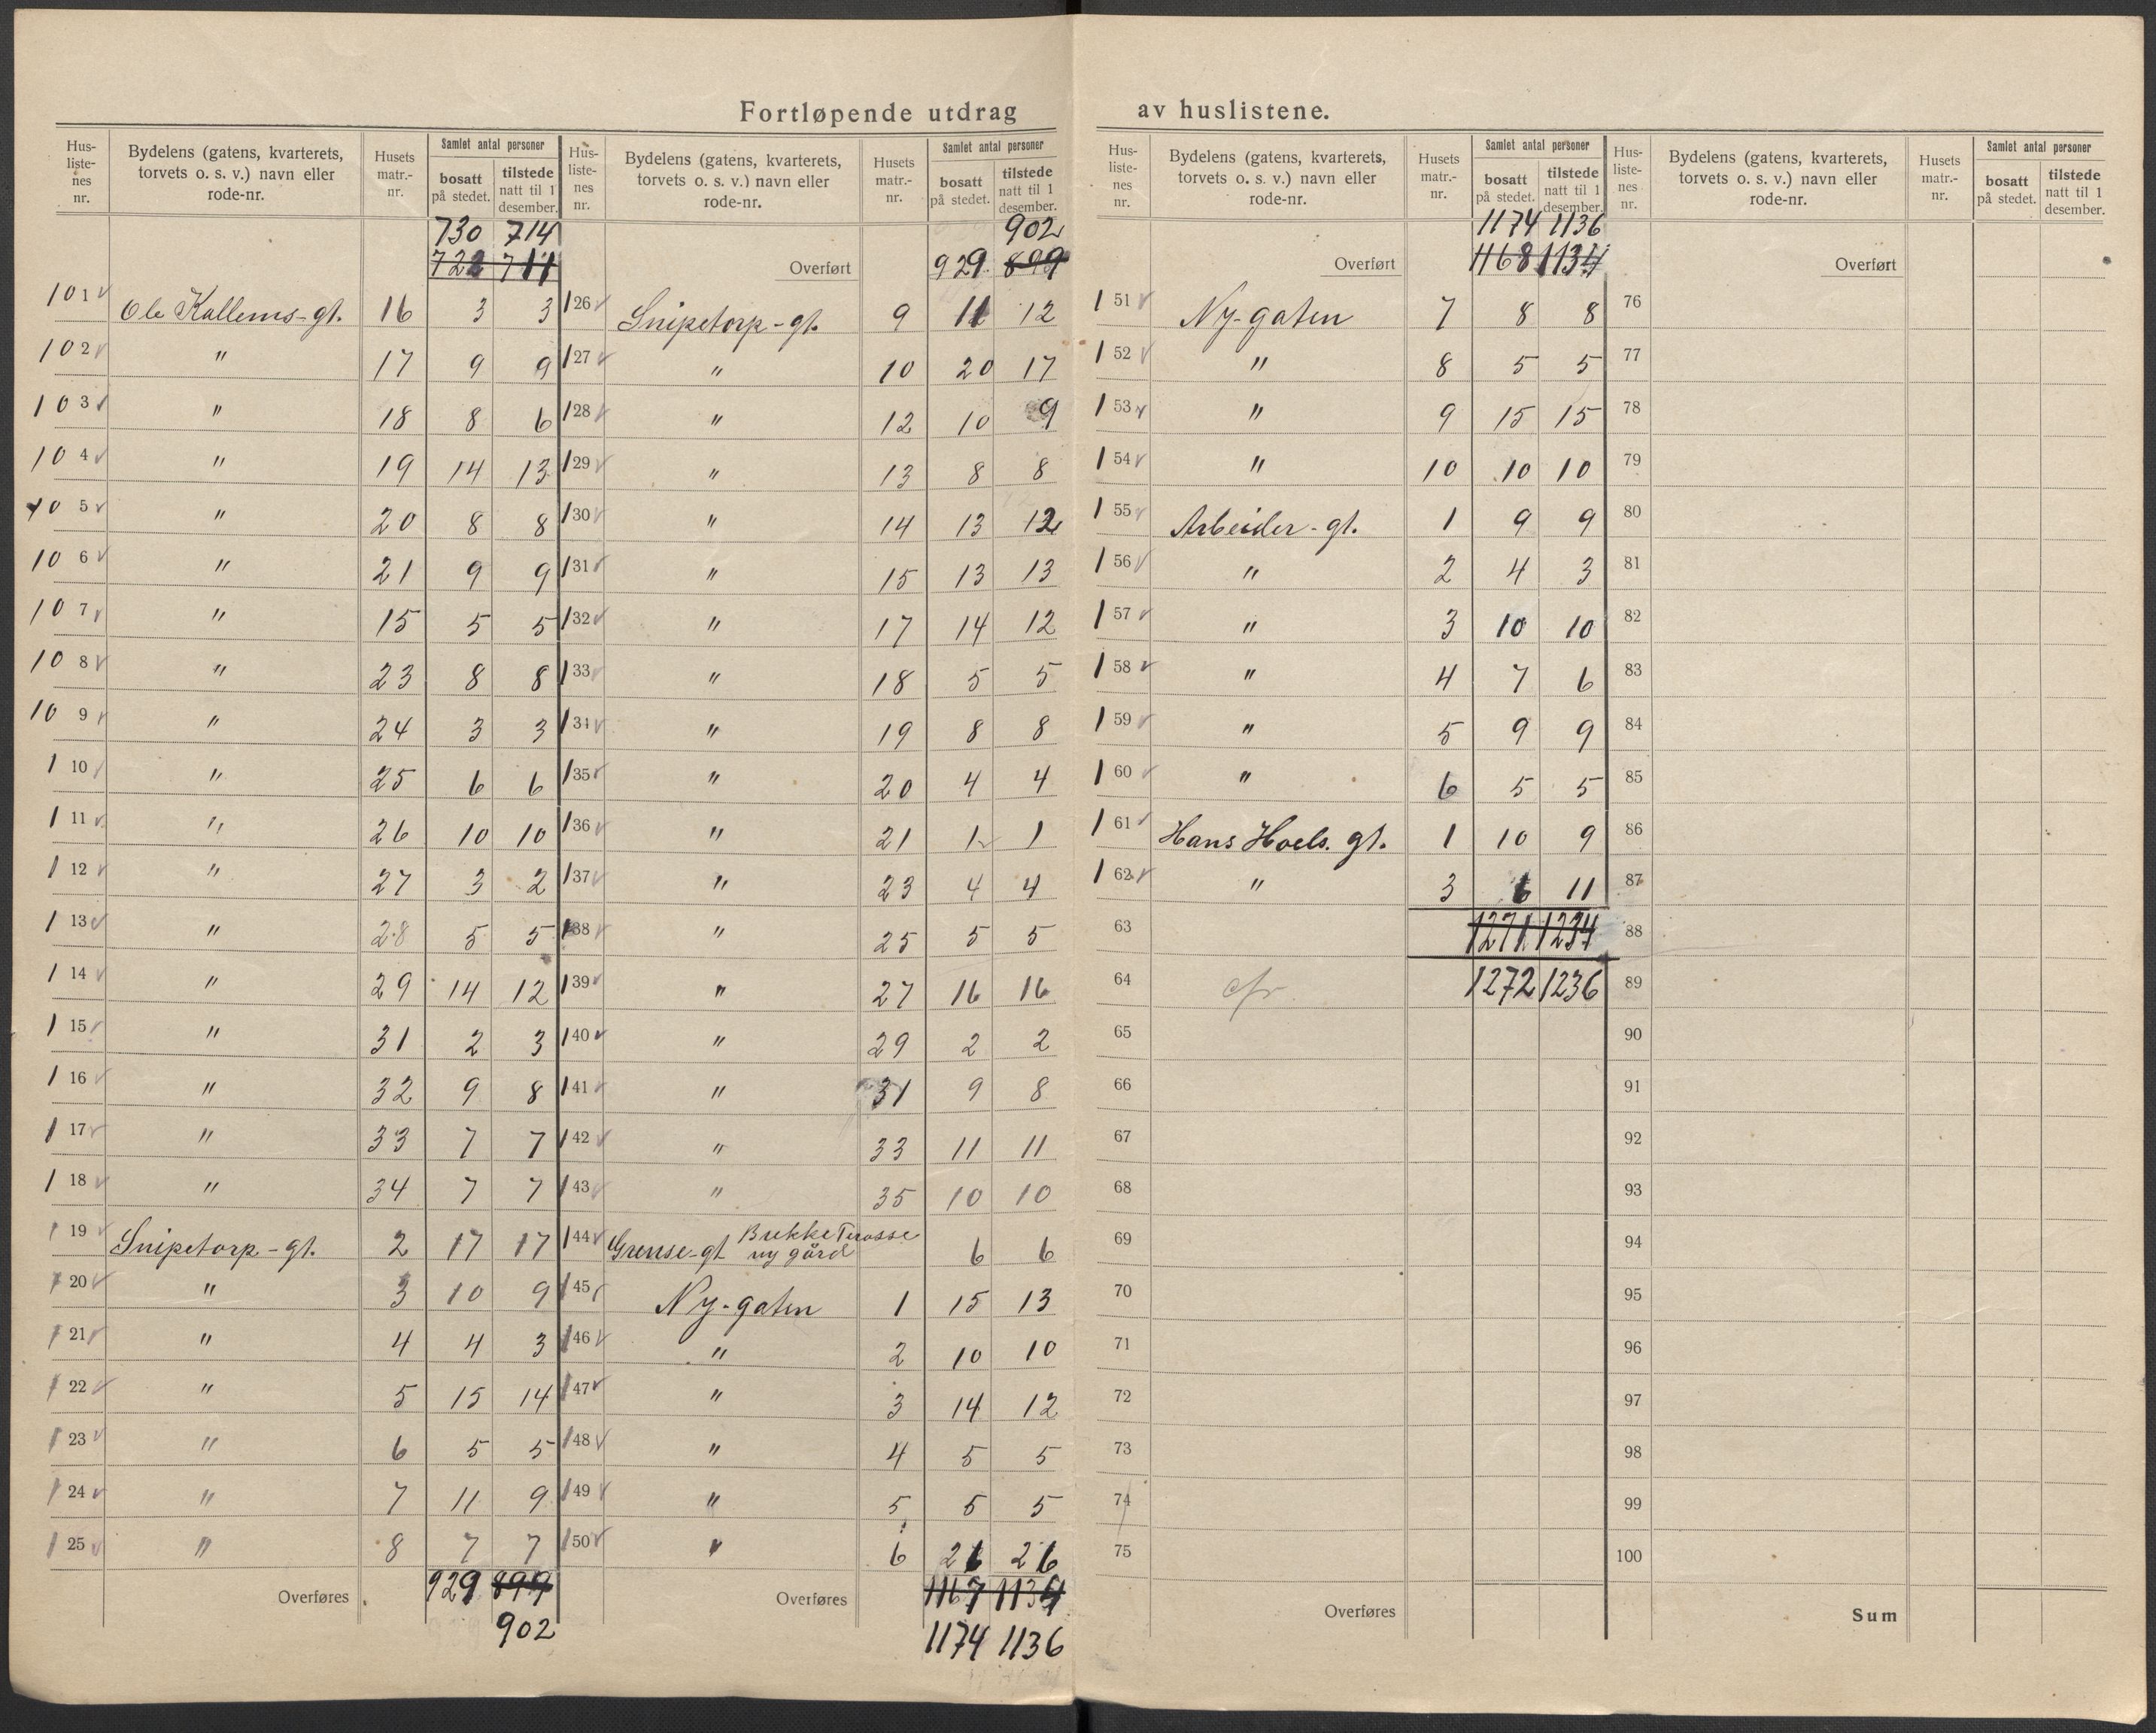 Fortløpende utdrag av huslistene.
Hus-listenes nr. | Bydelens (gatens, kvarterets, torvets o. s. v.) navn eller rode-nr. | Husets matr.-nr. | Samlet antal personer | bosatt på stedet. | tilstede natt til 1 desember.
730 714
722 711
101 Ole Kallems-gt. 16 3 3
102 " 17 9 9
103 " 18 8 6
104 " 19 14 13
105 " 20 8 8
106 " 21 9 9
107 " 15 5 5
108 " 23 8 8
109 " 24 3 3
110 " 25 6 6
111 " 26 10 10
112 " 27 3 2
113 " 28 5 5
114 " 29 14 12
115 " 31 2 3
116 " 32 9 8
117 " 33 7 7
118 " 34 7 7
119 Snipetorp-gt. 2 17 17
120 " 3 10 9
121 " 4 4 3
122 " 5 15 14
123 " 6 5 5
124 " 7 11 9
125 " 8 7 7
Overføres 929 899
902
Hus-listenes nr. | Bydelens (gatens, kvarterets, torvets o. s. v.) navn eller rode-nr. | Husets matr.-nr. | Samlet antal personer | bosatt på stedet. | tilstede natt til 1 desember.
902
Overført 929 899
126 Snipetorp-gt. 9 11 12
127 " 10 20 17
128 " 12 10 9
129 " 13 8 8
130 " 14 13 12
131 " 15 13 13
132 " 17 14 12
133 " 18 5 5
134 " 19 8 8
135 " 20 4 4
136 " 21 1 1
137 " 23 4 4
138 " 25 5 5
139 " 27 16 16
140 " 29 2 2
141 " 31 9 8
142 " 33 11 11
143 " 35 10 10
144 Grense-gt Brekke Terasse ny gård 6 6
145 Ny-gaten 1 15 13
146 " 2 10 10
147 " 3 14 12
148 " 4 5 5
149 " 5 5 5
150 " 6 26 26
Overføres 1167 1134
1174 1136
Hus-listenes nr. | Bydelens (gatens, kvarterets, torvets o. s. v.) navn eller rode-nr. | Husets matr.-nr. | Samlet antal personer | bosatt på stedet. | tilstede natt til 1 desember.
1174 1136
Overført 1168 1134
151 Ny-gaten 7 8 8
152 " 8 5 5
153 " 9 15 15
154 " 10 10 10
155 Arbeider-gt. 1 9 9
156 " 2 4 3
157 " 3 10 10
158 " 4 7 6
159 " 5 9 9
160 " 6 5 5
161 Hans Hoels. gt. 1 10 9
162 " 3 6 11
63 1271 1234
64 1272 1236
65
66
67
68
69
70
71
72
73
74
75
Overføres
Hus-listenes nr. | Bydelens (gatens, kvarterets, torvets o. s. v.) navn eller rode-nr. | Husets matr.-nr. | Samlet antal personer | bosatt på stedet. | tilstede natt til 1 desember.
Overført
76
77
78
79
80
81
82
83
84
85
86
87
88
89
90
91
92
93
94
95
96
97
98
99
100
Sum